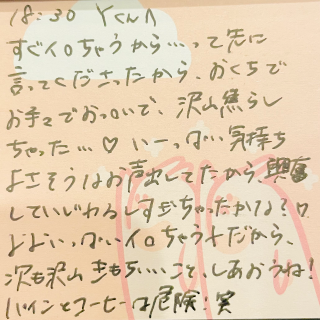 18:30 Yくんへ
すぐイロちゃうから…って先に
言ってくださったから、おくちで
お手々でおっいで、沢山焦らし
ちゃった…♡ いーっぱい気持ち
よさそうなお声出してたから、興奮
していじわるしすぎちゃったかな?♡
いっぱいイロちゃう+だから、
次も沢山きもちいいこと、しあおうね!
パインとコーヒーは危険!笑